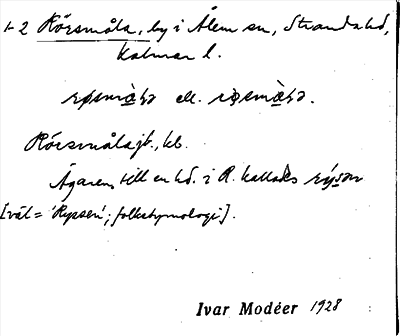 1-2 Rörsmåla, by i Ålem sn, Stranda hd,
Kalmar l.
eller
Rörsmålajb., kb.
Ägaren till en hd. i R. kallades rýsən
[väl = 'Ryssen'; folketymologi].
Ivar Modéer 1928